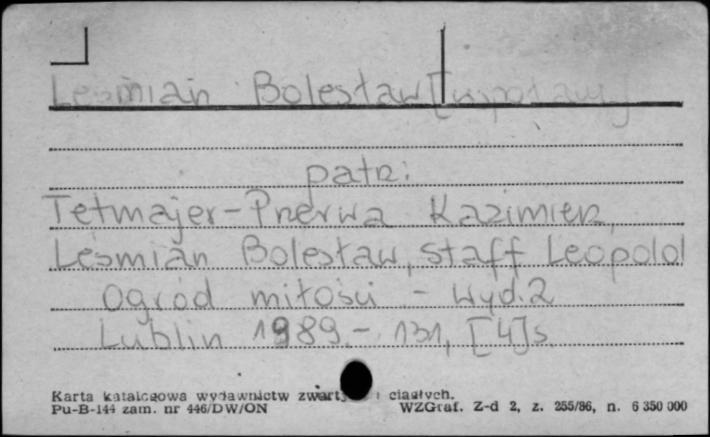 Leśmian Bolesław [współaut.]
patrz:
Tetmajer-Przerwa Kazimierz,
Leśmian Bolesław, Staff Leopold
Ogród miłości - Wyd. 2
Lublin 1989.- 131, [4] s.
Karta katalogowa wydawnictw zwartych i ciągłych.
Pu-B-144 zam. nr 446/DW/ON WZGraf. Z-d 2, z. 255/86, n. 6 350 000